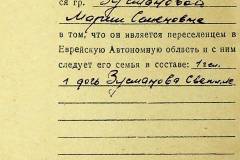 ся гр. Зусмановой
Марии Семеновне
в том, что он является переселенцем в
Еврейскую Автономную область и с ним
следует его семья в составе: 1 чел.
1 дочь Зусманова